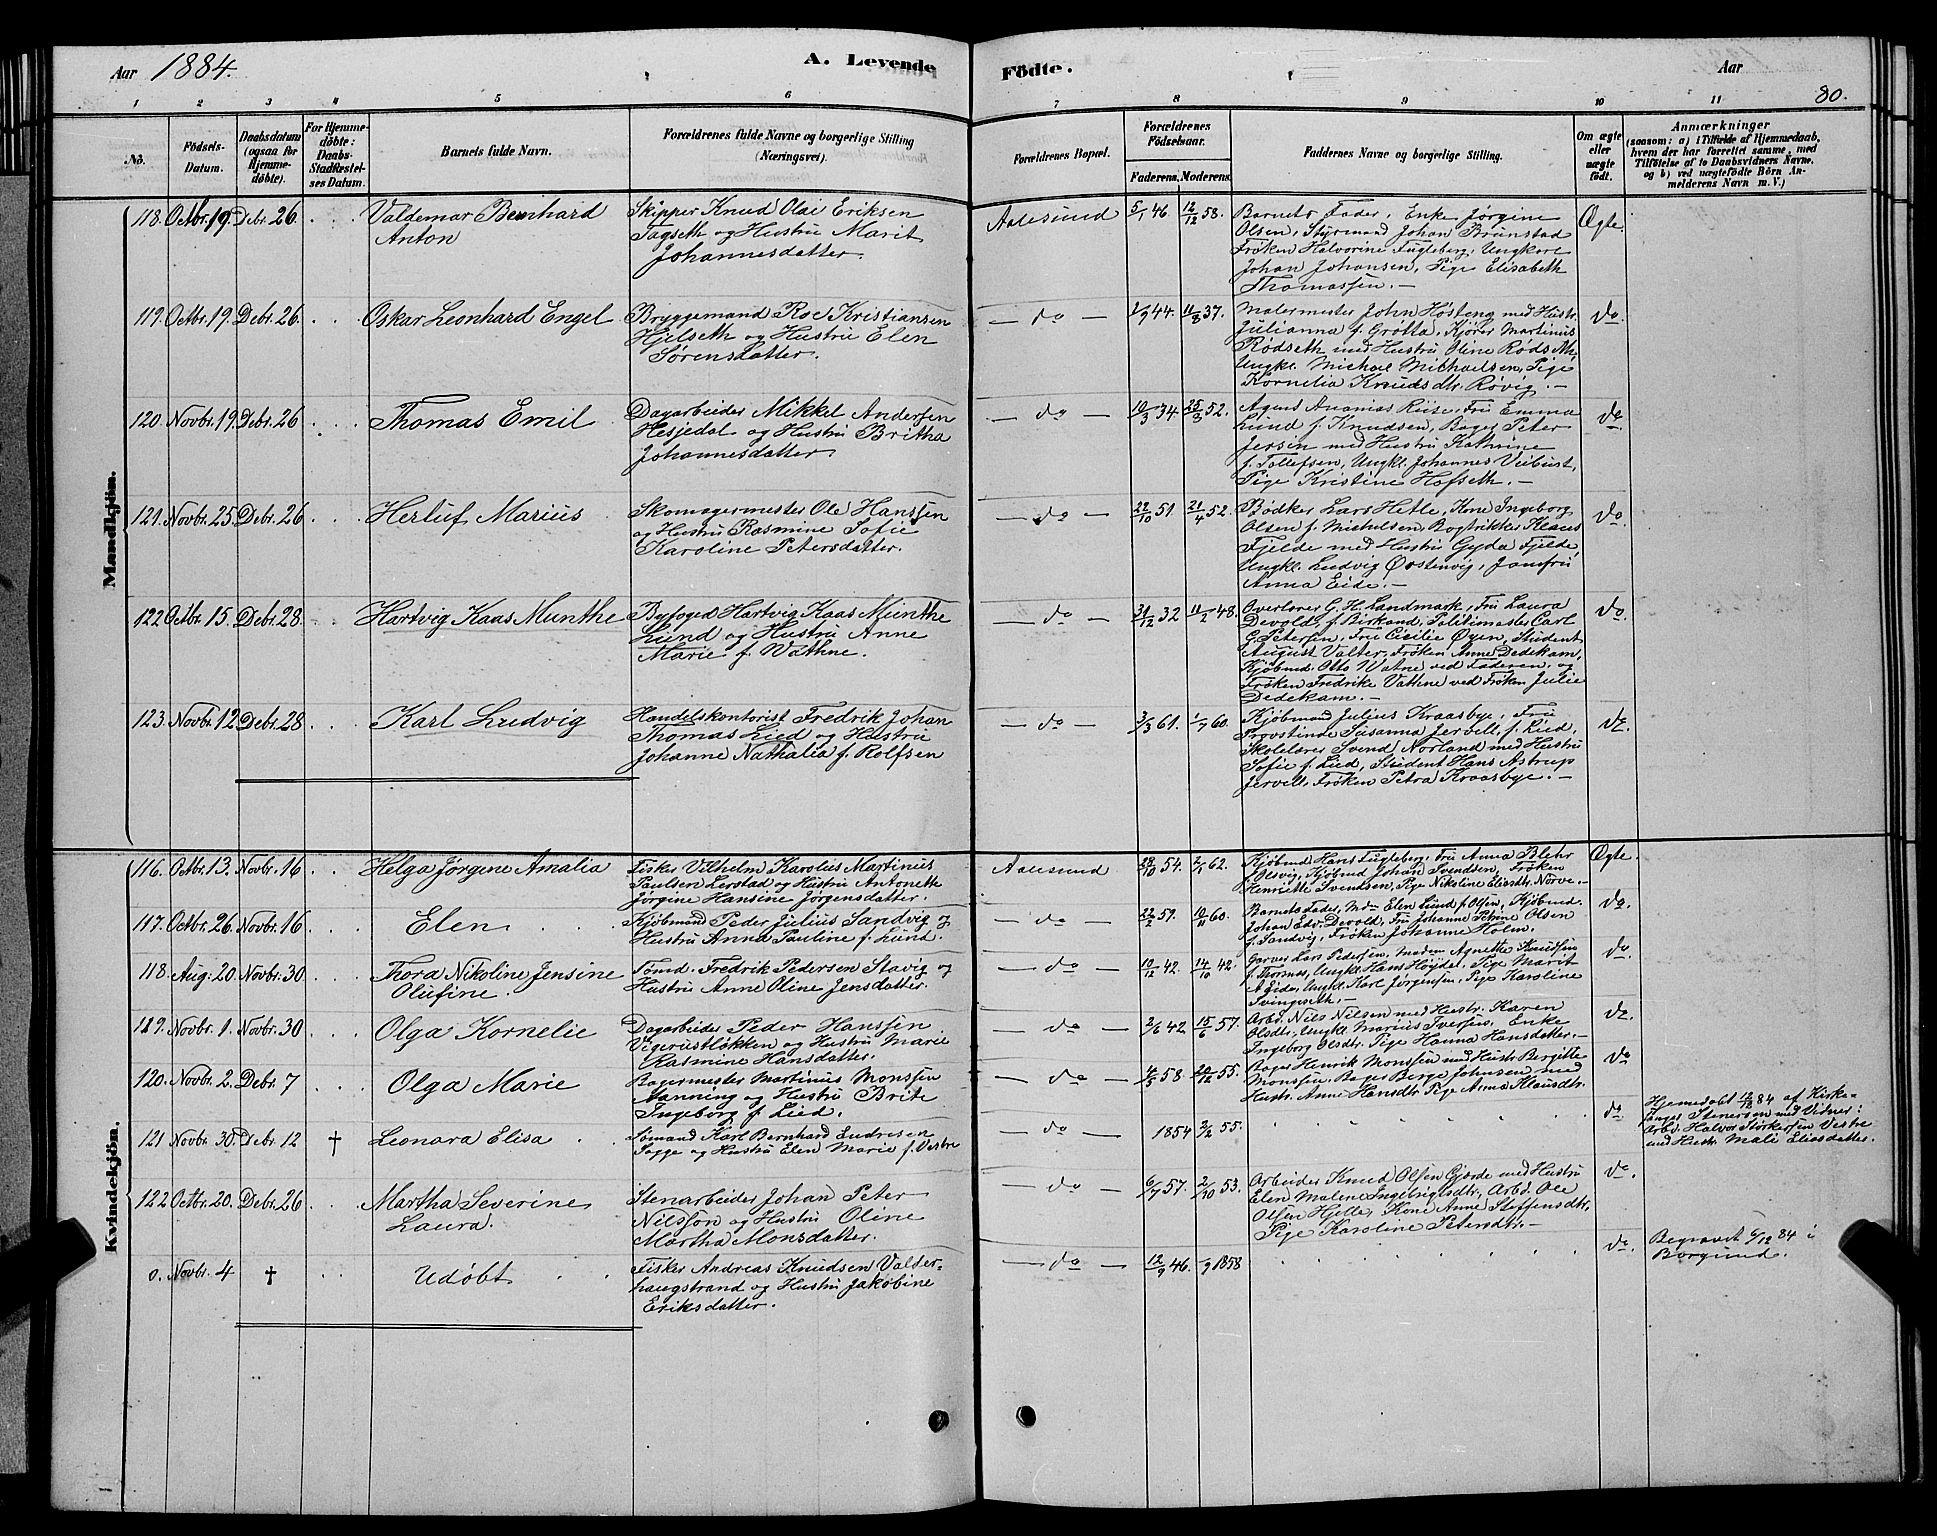 Aar 1884.
A. Levende
Fødte.
Aar
80.
1 2 3 4 5 6 7 8 9 10 11
No.
Fødsels-
Datum.
Daabsdatum
(ogsaa for
Hjemme-
døbte).
For Hjemme-
døbte:
Daabs-
Stadfæstel-
ses Datum.
Barnets fulde Navn.
Forældrenes fulde Navne og borgerlige Stilling
(Næringsvei).
Forældrenes Bopæl.
Forældrenes
Fødselsaar.
Faderens. Moderens.
Faddernes Navne og borgerlige Stilling.
Om ægte
eller
uægte
født.
Anmærkninger
(saasom: a) i Tilfælde af Hjemmedaab,
hvem der har forrettet samme, med
Tilføielse af to Daabsvidners Navne.
og b) ved uægtefødte Børn An-
melderens Navn m. V.)
Mandkjøn.
118. Octbr. 19. Debr. 26
Valdemar Bernhard
Anton
Skipper Knud Olai Eriksen
Tagseth og Hustru Marit
Johannesdatter
Aalesund
5/1 46 12/12 58.
Barnets Fader, Enke Jørgine
Olsen, Styrmand Johan Brunstad
Frøken Halvorine Fugleberg, Ungkarl
Johan Johansen, Pige Elisabeth
Thomassen. —
Ægte
119. Octbr. 19. Debr. 26.
Oskar Leonhard Engel
Bryggemand Roe Kristiansen
Hjelseth og Hustru Elen
Sørensdatter.
— do —
2/9 44. 11/8 37.
Malermester John Høsteng med Hustr.
Julianna f. Grøtta, Kjører Martinus
Rødseth med Hustru Oline Rødseth,
Ungkl. Michael Michaelsen, Pige
Kornelia Knudsdtr. Røvig. —
do.
120. Novbr. 19. Debr. 26
Thomas Emil
Dagarbeider Mikkel Andersen
Hesjedal og Hustru Britha
Johannesdatter
— do —
10/3 34. 25/3 52.
Agent Ananias Riise, Fru Emma
Lund f. Knudsen, Bager Peter
Jersin med Hustru Kathrine
f. Tollefsen, Ungkl. Johannes Veibust,
Pige Kristine Hofseth. —
do.
121. Novbr. 25. Debr. 26
Herluf Marius
Skomagermester Ole Hanssen
og Hustru Rasmine Sofie
Karoline Petersdatter.
— do —
22/10 51. 21/4 52.
Bødker Lars Hetle, Kone Ingeborg
Olsen f. Michelsen, Bogtrikker Klaus
Fjelde med Hustru Gyda Fjelde,
Ungkl. Ludvig Ørstenvig, Jomfru
Anna Eide. —
do.
122. Octbr. 15. Debr. 28.
Hartvig Kaas Munthe
Byfoged Hartvig Kaas Munthe
Lund og Hustru Anne
Marie f. Wathne.
— do —
31/12 32 11/2 48.
Overlærer G. H. Landmark, Fru Laura
Devold, f. Birkand, Politimester Carl
G. Petersen, Frue Cecilie Øyen, Student
August Valter, Frøken Anne Dedekam,
Kjøbmd. Otto Watne ved Faderen, og
Frøken Fredrike Vathne ved Frøken Julie
Dedekam. —
do.
123. Novbr. 12. Debr. 28
Karl Ludvig
Handelskontorist Fredrik Johan
Thomas Lied og Hustru
Johanne Nathalia f. Rolfsen
— do —
3/3 61. 1/7 60.
Kjøbmand Julius Kraasbye, Fru
Provstinde Susanna Jervell, f. Lied,
Skolelærer Svend Norland med Hustru
Sofie f. Lied, Student Hans Astrup
Jervell, Frøken Petra Kraasbye. —
do.
Kvindekjøn.
116. Octbr. 13. Novbr. 16
Helga Jørgene Amalia
Fisker Vilhelm Karolius Martinus
Paulsen Lerstad og Hustru Antonette
Jørgine Hansine Jørgensdatter.
Aalesund
28/10 54. 2/1 62.
Kjøbmd. Hans Fugleberg, Fru Anna Blehr
f. Olsvig, Kjøbmd Johan Svendsen, Frøken
Henriette Svendsen, Pige Nikoline Eliasdtr. Nørve. —
Ægte.
117. Octbr. 26. Novbr. 16
Elen
Kjøbmand Peder Julius Sandvig og
Hustru Anna Pauline f. Lund.
— do —
22/2 51. 10/11 60.
Barnets Fader, Mdm Elen Lund f. Olsen, Kjøbmd.
Johan Edv. Devold, Fru Johanne Petrine Olsen
f. Sandvig, Frøken Johanne Holm.
do.
118. Aug. 20. Novbr. 30
Thora Nikoline Jensine
Olufine.
Tømd. Fredrik Pedersen Stavig og
Hustru Anne Oline Jensdatter.
— do —
10/12 42. 14/10 42.
Garver Lars Pedersen, Madm Agnette Knudsen
f. Thormes, Ungkl. Hans Højdel, Pige Marit
A. Eide, Ungkl. Karl Jørgensen, Pige Karoline
Svingseth. —
do.
119. Novbr. 1. Novbr. 30
Olga Kornelie
Dagarbeider Peder Hanssen
Vigerustløkken og Hustru Marie
Rasmine Hansdatter.
— do —
2/6 42. 15/6 57.
Arbd. Nils Nilsen med Hustr. Karen
Olsdtr., Ungkl. Marius Iversen, Enke
Ingeborg Olsdtr. Pige Hanna Hansdatter. —
do.
120. Novbr. 2. Debr. 7
Olga Marie
Bagermester Martinus Monssen
Nanning og Hustru Brite
Ingeborg f. Lied.
— do —
4/5 58. 20/12 55.
Bager Henrik Monssen med Hustr. Bergitte
Monssen, Bager Berge Johnsen med
Hustr. Anne Hansdtr. Pige Anna Klausdtr.
do
121 Novbr. 30. Debr. 12 †
Leonara Elisa
Sømand Karl Bernhard Endresen
Sogge og Hustru Elen Marie f. Vestre
— do —
1854 2/2 55.
do.
Hjemedøbt 12/12 84 af Kirke-
sanger Stenersen med Vidner:
Arbd. Halvor Størkersen Vestre
med Hustr. Mali Eliasdatter.
122 Octbr. 20. Debr. 26
Martha Severine
Laura.
Stenarbeider Johan Peter
Nilsson og Hustru Oline
Martha Monsdatter.
— do —
6/7 57. 2/10 53.
Arbeider Knud Olsen Gjerde med Hustru
Elen Malene Ingebrigtsdtr, Arbd. Ole
Olsen Hjelle, Kone Anne Steffensdtr,
Pige Karoline Petersdtr. —
do.
0. Novbr. 4 †
Udøbt
Fisker Andreas Knudsen Valder-
haugstrand og Hustru Jakobine
Eriksdatter.
— do —
12/9 46. /9 1858
do.
Begravet 6/12 84 i
Borgund.